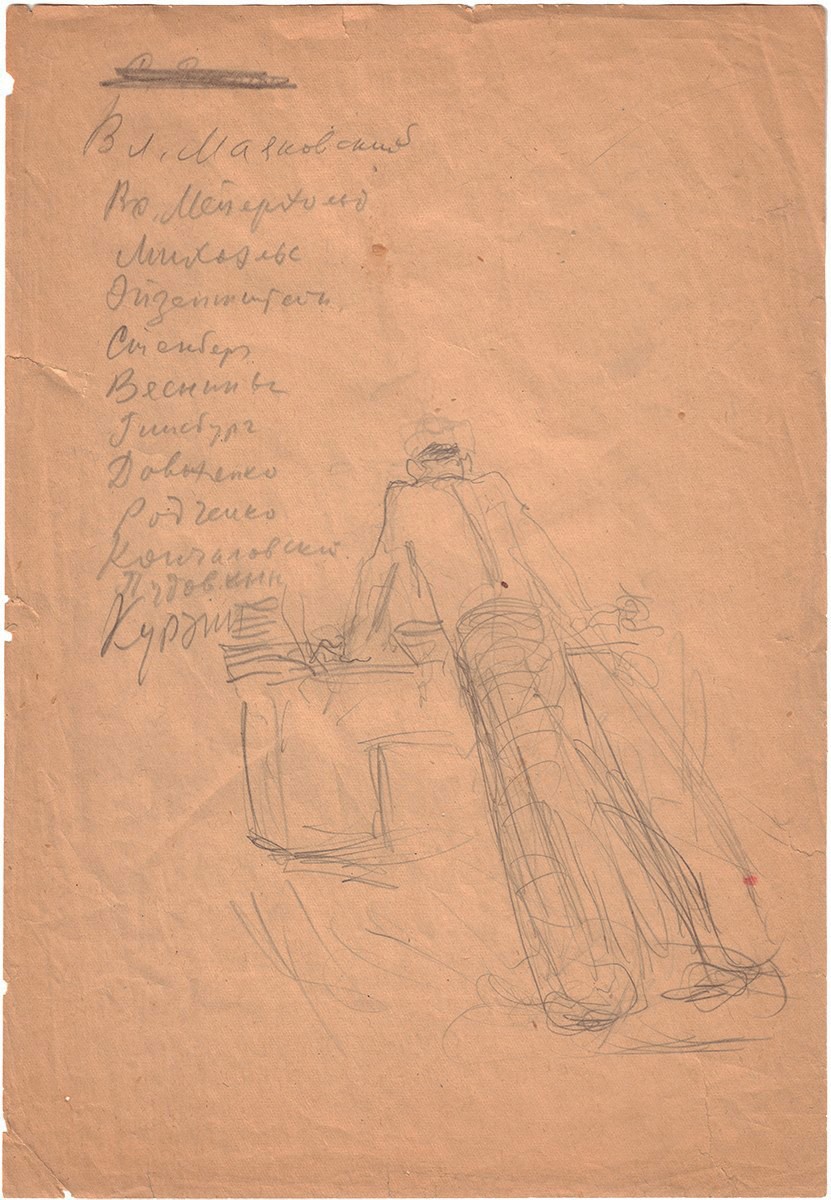 Вл. Маяковский
Вс. Мейерхольд
Михоэлс
Эйзенштейн
Стенберг
Веснины
Гинсбург
Довженко
Родченко
Кончаловский
Пудовкин